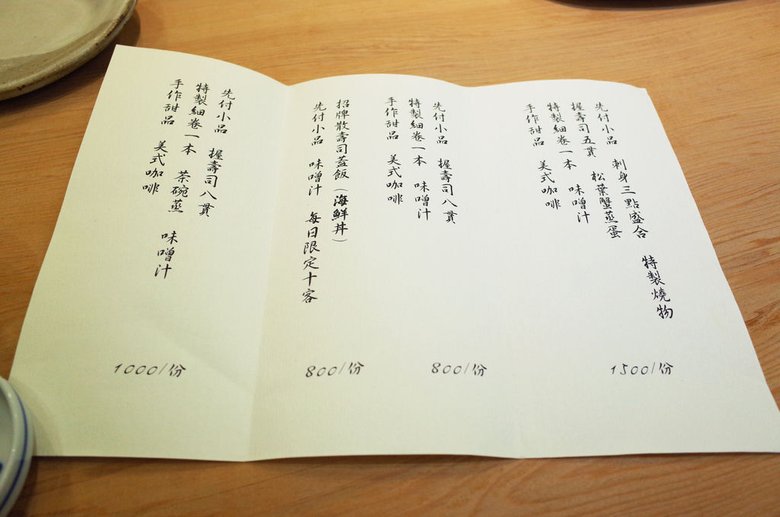 先付小品 刺身三點盛合 特製燒物
握壽司五貫 松葉蟹蒸蛋
特製細卷一本 味噌汁
手作甜品 美式咖啡
1500/份
先付小品 握壽司八貫
特製細卷一本 味噌汁
手作甜品 美式咖啡
800/份
招牌散壽司蓋飯(海鮮丼)
先付小品 味噌汁 每日限定十客
800/份
先付小品 握壽司八貫
特製細卷一本 茶碗蒸 味噌汁
手作甜品 美式咖啡
1000/份